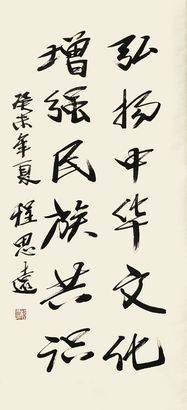 弘扬中华文化
增强民族共识
癸未年夏 程思远